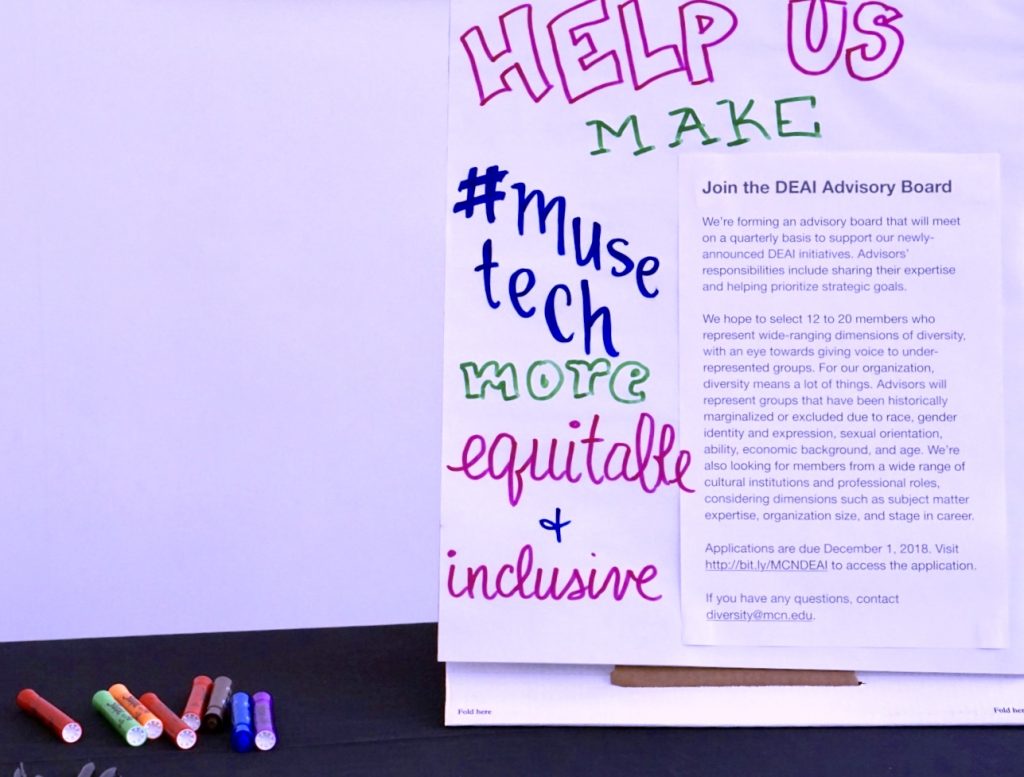 HELP US
MAKE
#muse
tech
more
equitable
+
inclusive
Join the DEAI Advisory Board
We're forming an advisory board that will meet
on a quarterly basis to support our newly-
announced DEAI initiatives. Advisors'
responsibilities include sharing their expertise
and helping prioritize strategic goals.
We hope to select 12 to 20 members who
represent wide-ranging dimensions of diversity,
with an eye towards giving voice to under-
represented groups. For our organization,
diversity means a lot of things. Advisors will
represent groups that have been historically
marginalized or excluded due to race, gender
identity and expression, sexual orientation,
ability, economic background, and age. We're
also looking for members from a wide range of
cultural institutions and professional roles,
considering dimensions such as subject matter
expertise, organization size, and stage in career.
Applications are due December 1, 2018. Visit
http://bit.ly/MCNDEAI to access the application.
If you have any questions, contact
diversity@mcn.edu.
Fold here
Fold here